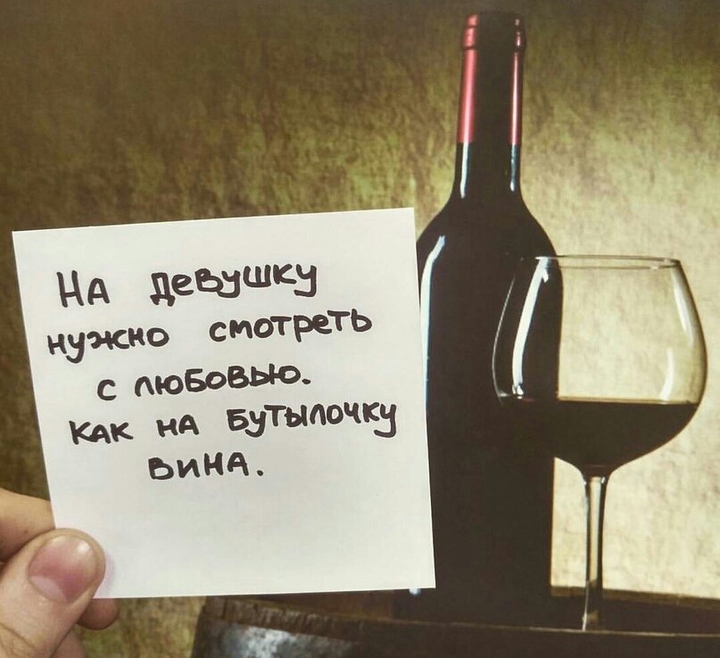 На девушку
нужно смотреть
с любовью.
Как на бутылочку
вина.